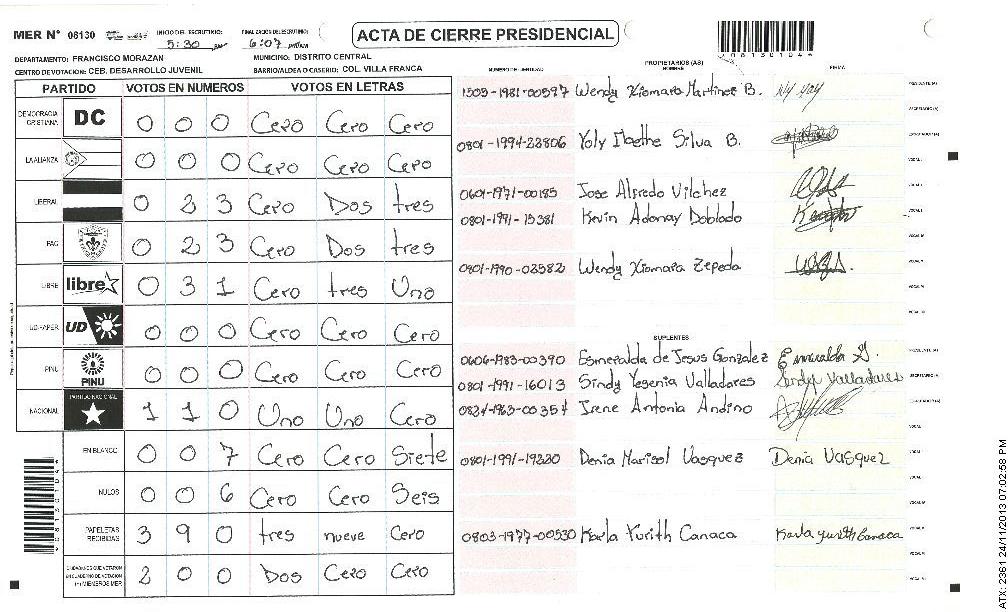 MER N° 08130 INICIO DEL ESCRUTINIO: 5:30 pm FINALIZACION DEL ESCRUTINIO: 6:07 pm ACTA DE CIERRE PRESIDENCIAL
DEPARTAMENTO: FRANCISCO MORAZAN MUNICIPIO: DISTRITO CENTRAL
CENTRO DE VOTACION: CEB. DESARROLLO JUVENIL BARRIO/ALDEA O CASERIO: COL. VILLA FRANCA
PARTIDO VOTOS EN NUMEROS VOTOS EN LETRAS
DEMOCRACIA CRISTIANA DC 0 0 0 Cero Cero Cero
LA ALIANZA 0 0 0 Cero Cero Cero
LIBERAL 0 2 3 Cero Dos tres
PAC 0 2 3 Cero Dos tres
LIBRE libre 0 3 1 Cero tres Uno
UD-FAPER UD 0 0 0 Cero Cero Cero
PINU PINU 0 0 0 Cero Cero Cero
NACIONAL PARTIDO NACIONAL 1 1 0 Uno Uno Cero
EN BLANCO 0 0 7 Cero Cero Siete
NULOS 0 0 6 Cero Cero Seis
PAPELETAS RECIBIDAS 3 9 0 tres nueve Cero
CIUDADANOS QUE VOTARON EN CUADERNO DE VOTACION (+) MIEMBROS MER 2 0 0 Dos Cero Cero
NUMERO DE IDENTIDAD PROPIETARIOS (AS) NOMBRE FIRMA
1503-1981-00597 Wendy Xiomara Martinez B.
0801-1994-22806 Yoly Maethe Silva B.
0601-1971-00185 Jose Alfredo Vilchez
0801-1991-15381 Kevin Adonay Doblado
0801-1990-02582 Wendy Xiomara Zepeda
SUPLENTES
0606-1983-00390 Esmeralda de Jesus Gonzalez Esmeralda G.
0801-1991-16013 Sindy Yesenia Valladares Sindy Valladares
0824-1963-00357 Irene Antonia Andino
0801-1991-19220 Denia Marisol Vasquez Denia Vasquez
0803-1977-00530 Karla Yurith Canaca Karla Yurith Canaca
ATX: 2361 24/11/2013 07:02:58 PM